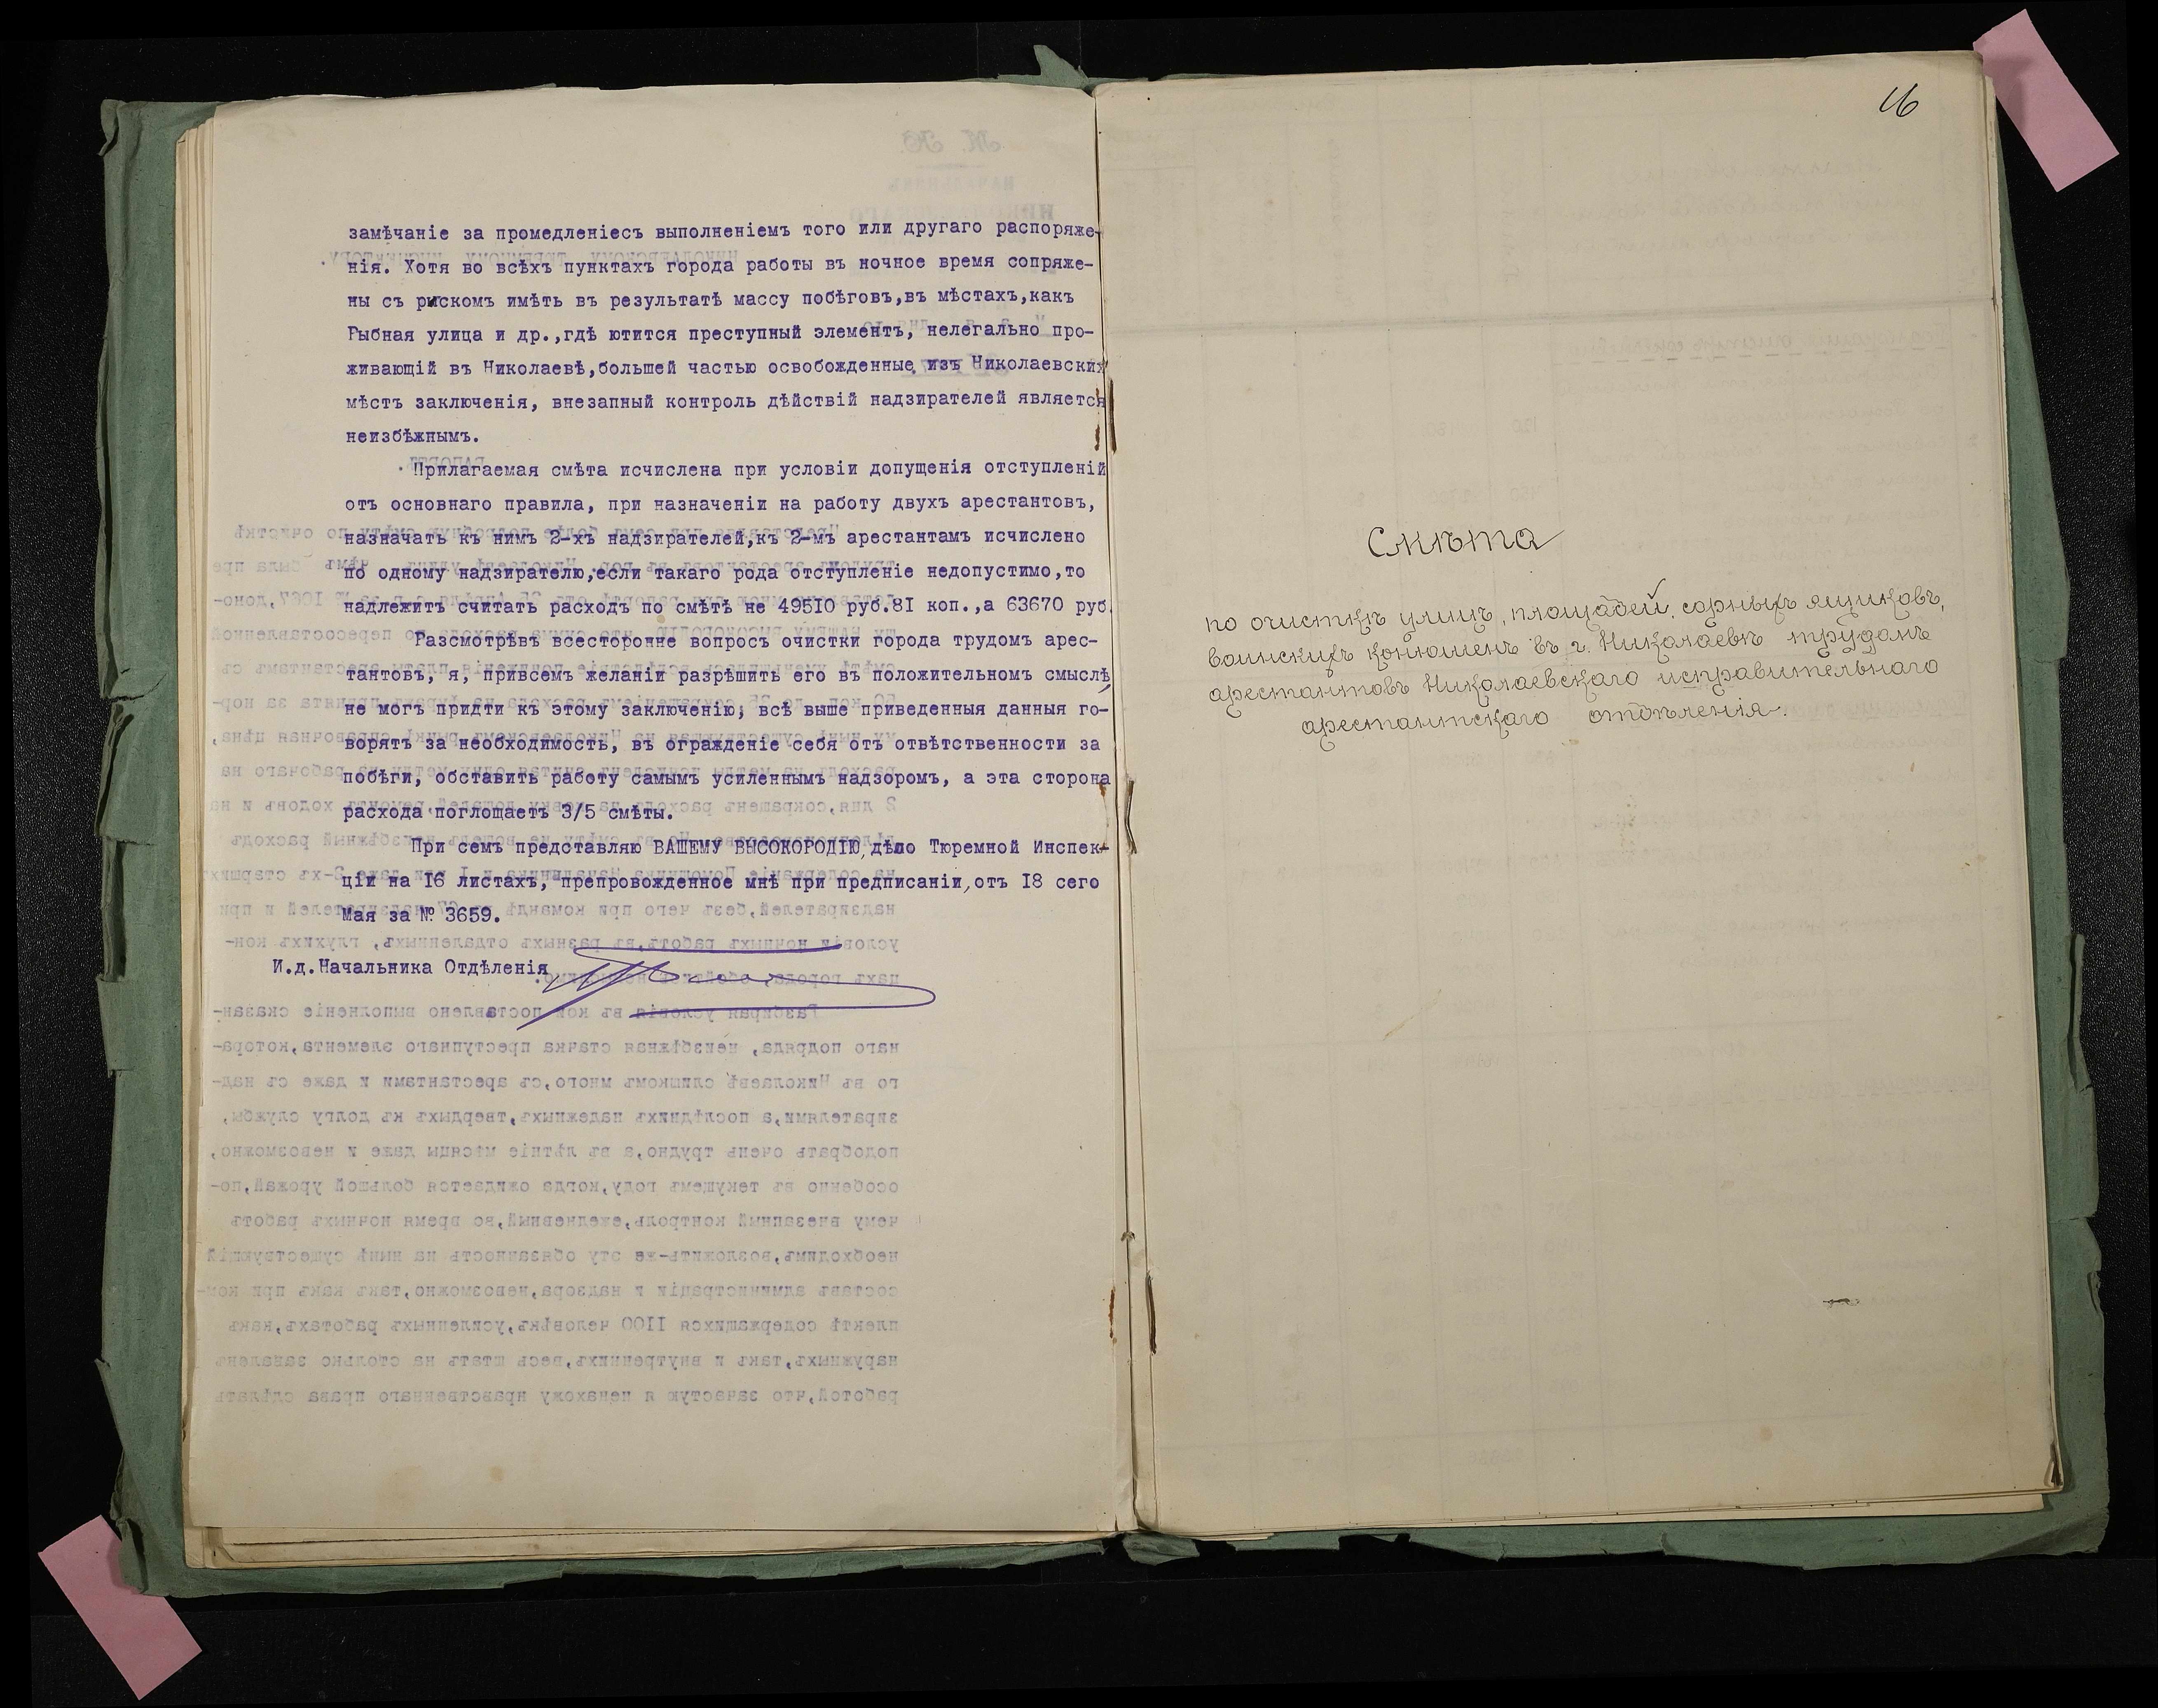 замѣчаніе за промедленіесъ выполненіемъ того или другаго распоряже-
нія. Хотя во всѣхъ пунктахъ города работы въ ночное время сопряже-
ны съ рискомъ имѣть въ результатѣ массу побѣговъ,въ мѣстахъ,какъ
Рыбная улица и др.,гдѣ ютится преступный элементъ, нелегально про-
живающій въ Николаевѣ,большей частью освобожденные изъ Николаевскихъ
мѣстъ заключенія, внезапный контроль дѣйствій надзирателей является
неизбѣжнымъ.
Прилагаемая смѣта исчислена при условіи допущенія отступленій
отъ основнаго правила, при назначеніи на работу двухъ арестантовъ,
назначать къ нимъ 2-хъ надзирателей,къ 2-мъ арестантамъ исчислено
по одному надзирателю,если такаго рода отступленіе недопустимо,то
надлежитъ считать расходъ по смѣтѣ не 49510 руб.81 коп.,а 63670 руб.
Разсмотрѣвъ всесторонне вопросъ очистки города трудомъ арес-
тантовъ, я, привсемъ желаніи разрѣшить его въ положительномъ смыслѣ,
не могъ придти къ этому заключенію; всѣ выше приведенныя данныя го-
ворятъ за необходимость, въ огражденіе себя отъ отвѣтственности за
побѣги, обставить работу самымъ усиленнымъ надзоромъ, а эта сторона
расхода поглощаетъ 3/5 смѣты.
При семъ представляю ВАШЕМУ ВЫСОКОРОДІЮ, дѣло Тюремной Инспек-
ціи на 16 листахъ, препровожденное мнѣ при предписаніи, отъ 18 сего
Мая за № 3659.
И.д.Начальника Отдѣленія
16
Смѣта
по очисткѣ улицъ, площадей, сорныхъ ящиковъ,
воинскихъ конюшенъ въ г. Николаевѣ трудомъ
арестантовъ Николаевскаго исправительнаго
арестантскаго отдѣленія.